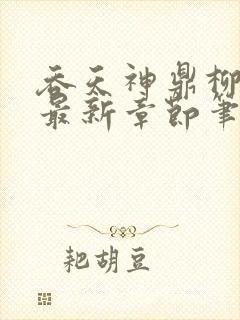 吞天神鼎柳
最新章节笔
耙胡豆